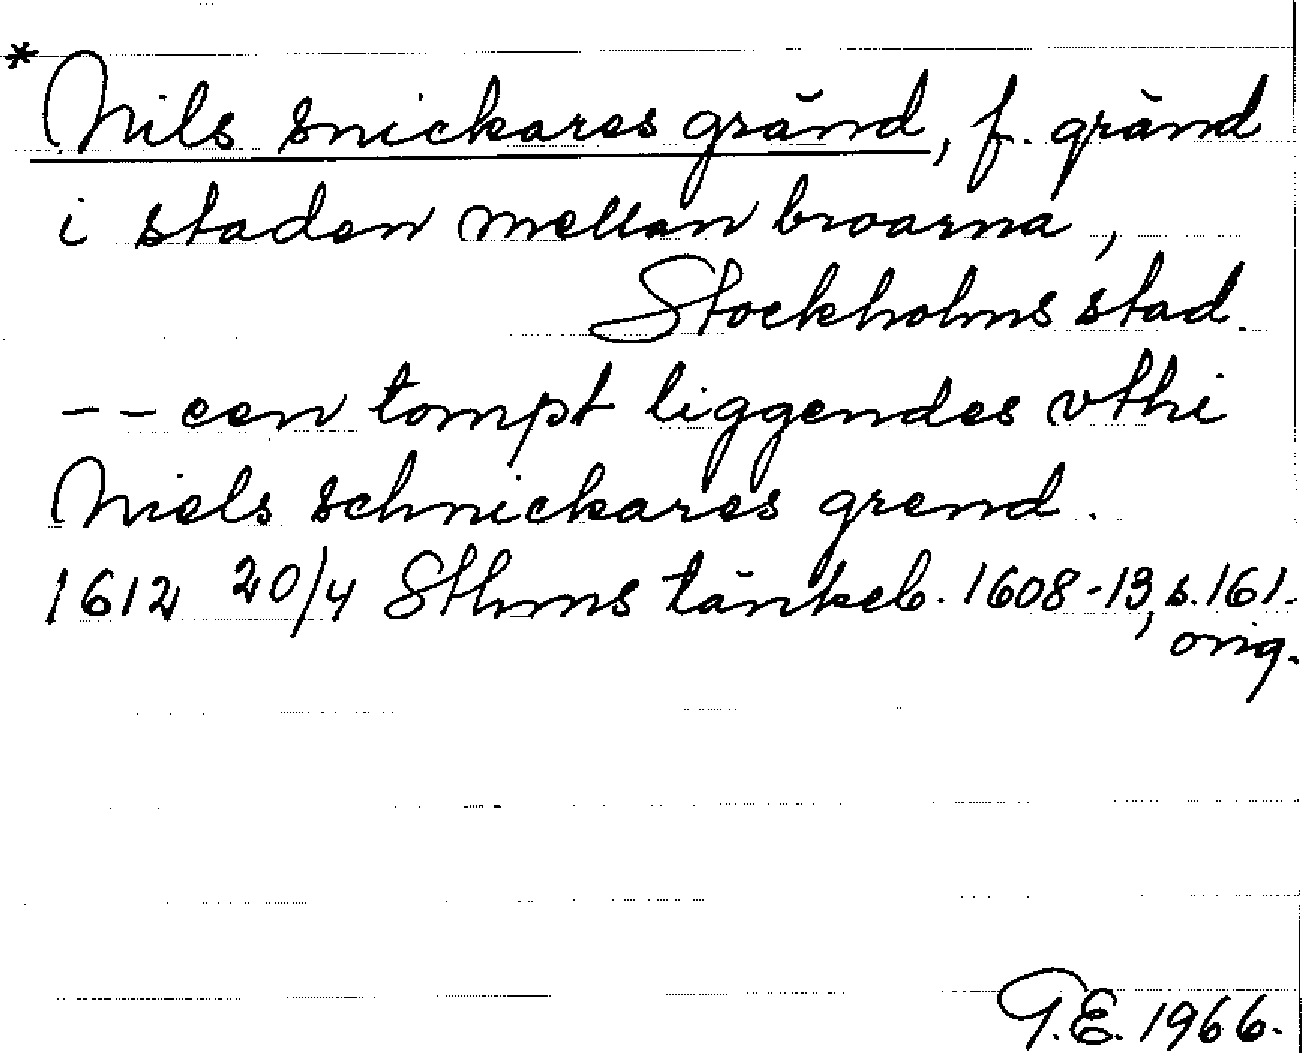 * Nils snickares gränd, f. gränd
i staden mellan broarna,
Stockholms stad.
-- een tompt liggendes vthi
Niels schnickares grend.
1612 20/4 Sthms tänkeb. 1608-13, s. 161.
orig.
G.E. 1966.